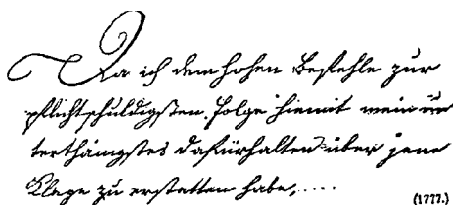 Da ich dem hohen Befehle zur
pflichtschuldigsten Folge hiemit mein un
terthänigstes Dafürhalten über jene
Klage zu erstatten habe, .....
(1777.)